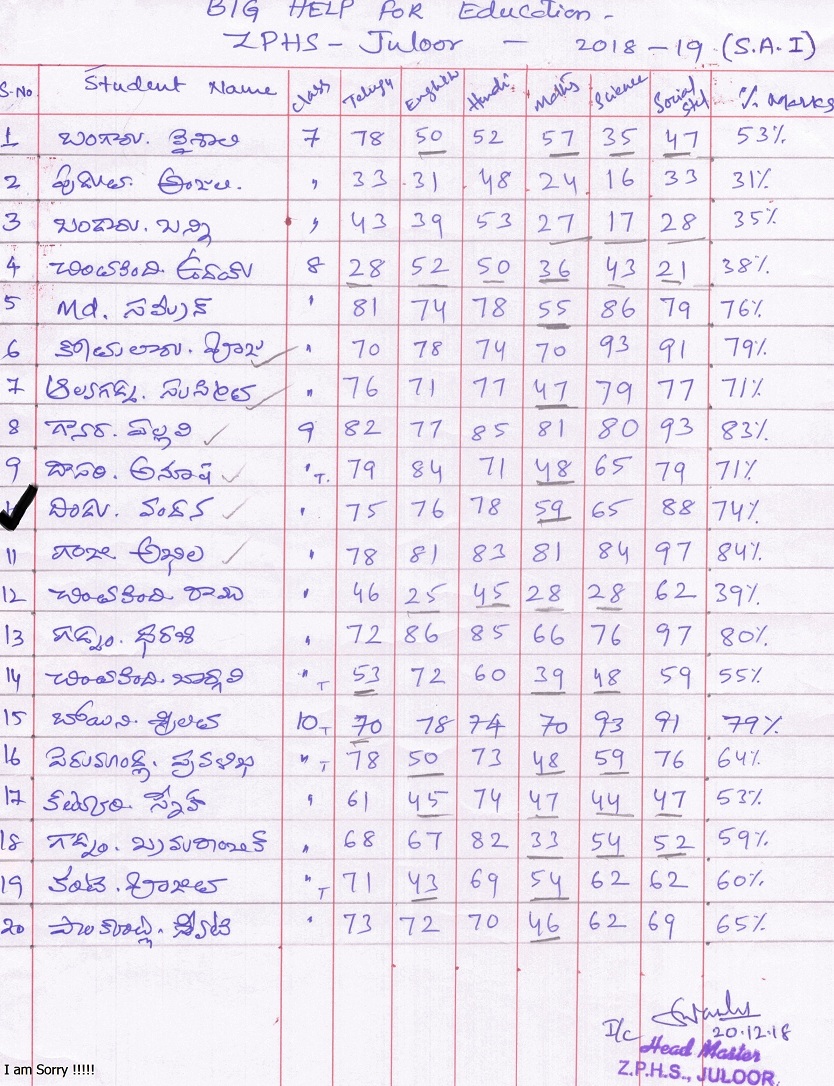 BIG HELP FOR Education -
ZPHS - Juloor - 2018-19 (S.A.I)
S.No Student Name Class Telugu English Hindi Maths Science Social Std % Marks
1 బంగారు. వైశాలి 7 78 50 52 57 35 47 53%
2 అంజలి. " 33 31 48 24 16 33 31%
3 బండారు. బన్ని " 43 39 53 27 17 28 35%
4 చింతకింది. ఉదయ్ 8 28 52 50 36 43 21 38%
5 Md. సమీర్ " 81 74 78 55 86 79 76%
6 " 70 78 74 70 93 91 79%
7 " 76 71 77 47 79 77 71%
8 పల్లవి 9 82 77 85 81 80 93 83%
9 దాసరి. అనూష " T. 79 84 71 48 65 79 71%
దిండు. వందన " 75 76 78 59 65 88 74%
11 గంజి అఖిల " 78 81 83 81 84 97 84%
12 చింతకింది రాము " 46 25 45 28 28 62 39%
13 గడ్డం. ధరణి " 72 86 85 66 76 97 80%
14 చింతకింది. భార్గవి " T 53 72 60 39 48 59 55%
15 బోయిని. శ్రీలత 10 T 70 78 74 70 93 91 79%
16 పెరుమాండ్ల. ప్రవళిక " T 78 50 73 48 59 76 64%
17 " 61 45 74 47 44 47 53%
18 గడ్డం. " 68 67 82 33 54 52 59%
19 " T 71 43 69 54 62 62 60%
20 " 73 72 70 46 62 69 65%
I/c 20.12.18
Head Master
Z.P.H.S., JULOOR.
I am Sorry !!!!!